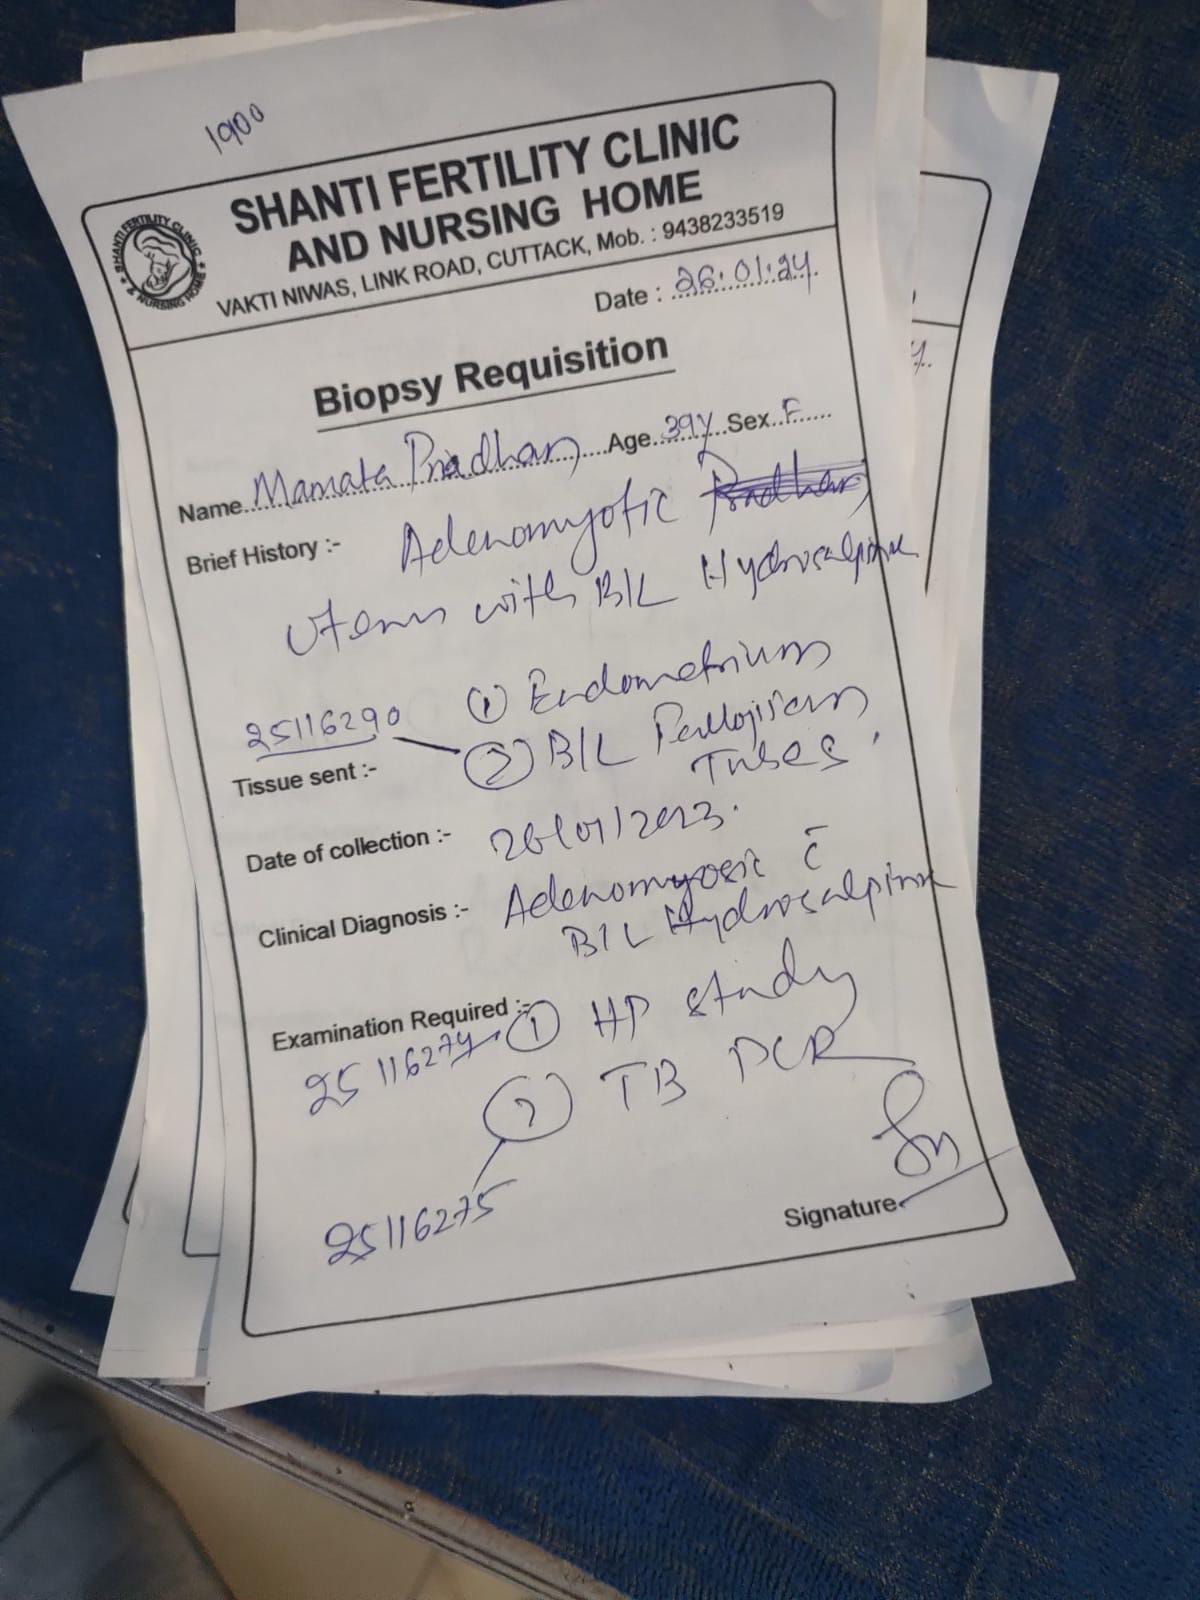 1900
SHANTI FERTILITY CLINIC
AND NURSING HOME
VAKTI NIWAS, LINK ROAD, CUTTACK, Mob. : 9438233519
SHANTI FERTILITY CLINIC & NURSING HOME
Date : 26.01.24.
Biopsy Requisition
Name Mamata Pradhan Age 39y Sex F
Brief History :- Adenomyotic Pradhan
Uterus with B/L Hydrosalpinx
① Endometrium
25116290 ② B/L Fallopian
Tissue sent :- Tubes.
Date of collection :- 26/01/2023.
Clinical Diagnosis :- Adenomyosic c̄
B/L Hydrosalpinx
Examination Required :- ① HP study
25116274
② TB PCR
25116275
Signature